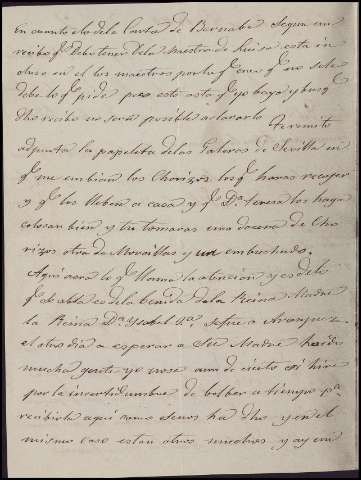 En cuanto a lo de la Carta de Bernabe Segun un
recibo q.e debe tener de la maestra de Luisa está in
cluso en el los maestros por lo q.e creo q.e no se le
debe lo q.e pide pero esto asta q.e yo baya y busq.e
dho recibo no será posible aclararlo
Te remito
adjunta la papeleta de las Galeras de Sevilla en
q.e me embian los Chorizos los q.e haras recojer
y q.e los lleben a casa y q.e D.a Teresa los haga
colocar bien y tu tomaras una docena de Cho
rizos otra de Morcillas y un embuchado.
Aqui aora lo q.e llama la atencion y es de lo
q.e se abla es de la benida de la Reina Madre
la Reina D.a Ysabel 2.a se fue a Aranjuez
el otro dia a esperar a Su Madre ha ido
mucha gente yo no se aun de cierto si hire
por la incertidumbre de bolber a tiempo p.a
recibirla aqui como Senos ha dho y en el
mismo caso estan otros muchos y ay em